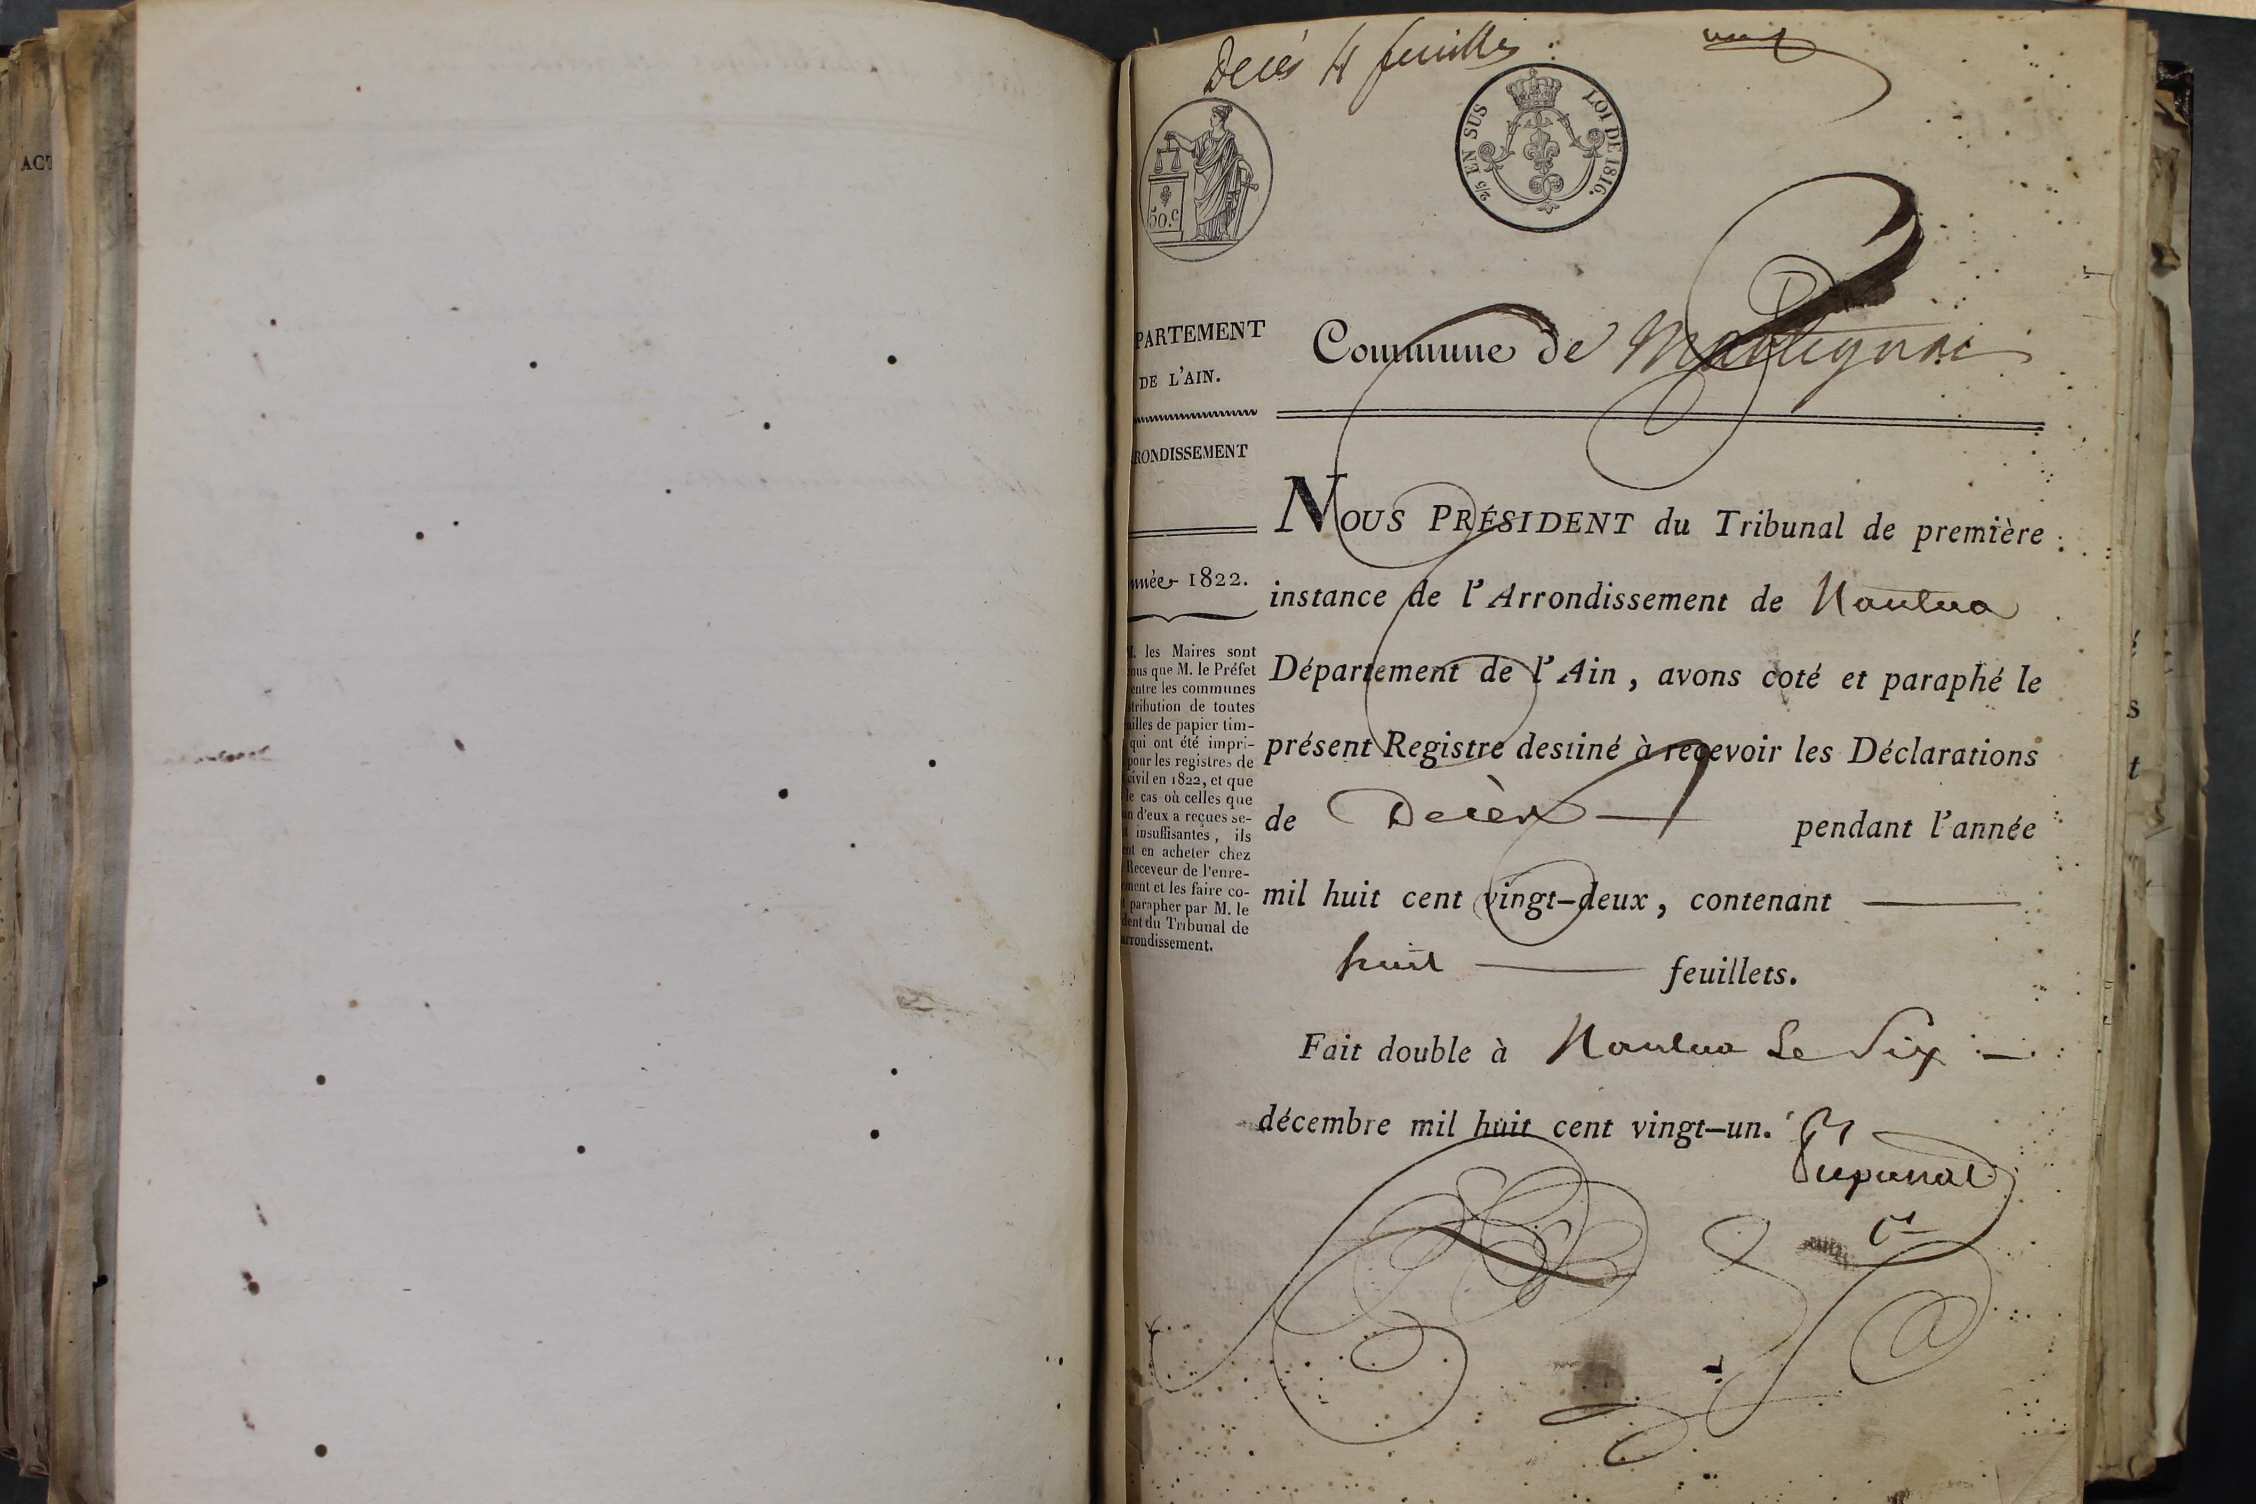 ACT
Decès 4 feuilles
50.c
2/5 EN SUS LOI DE 1816.
PARTEMENT
DE L'AIN.
RONDISSEMENT
nnée 1822.
M. les Maires sont
nus que M. le Préfet
entre les communes
tribution de toutes
uilles de papier tim-
qui ont été impri-
pour les registres de
civil en 1822, et que
le cas où celles que
n d'eux a reçues se-
t insuffisantes, ils
ent en acheter chez
Receveur de l'enre-
ment et les faire co-
t parapher par M. le
dent du Tribunal de
arrondissement.
Commune de Martignat
NOUS PRÉSIDENT du Tribunal de première
instance de l'Arrondissement de Nantua
Département de l'Ain, avons coté et paraphé le
présent Registre destiné à recevoir les Déclarations
de Decès pendant l'année
mil huit cent vingt-deux, contenant
huit feuillets.
Fait double à Nantua Le Six
décembre mil huit cent vingt-un.
s
t